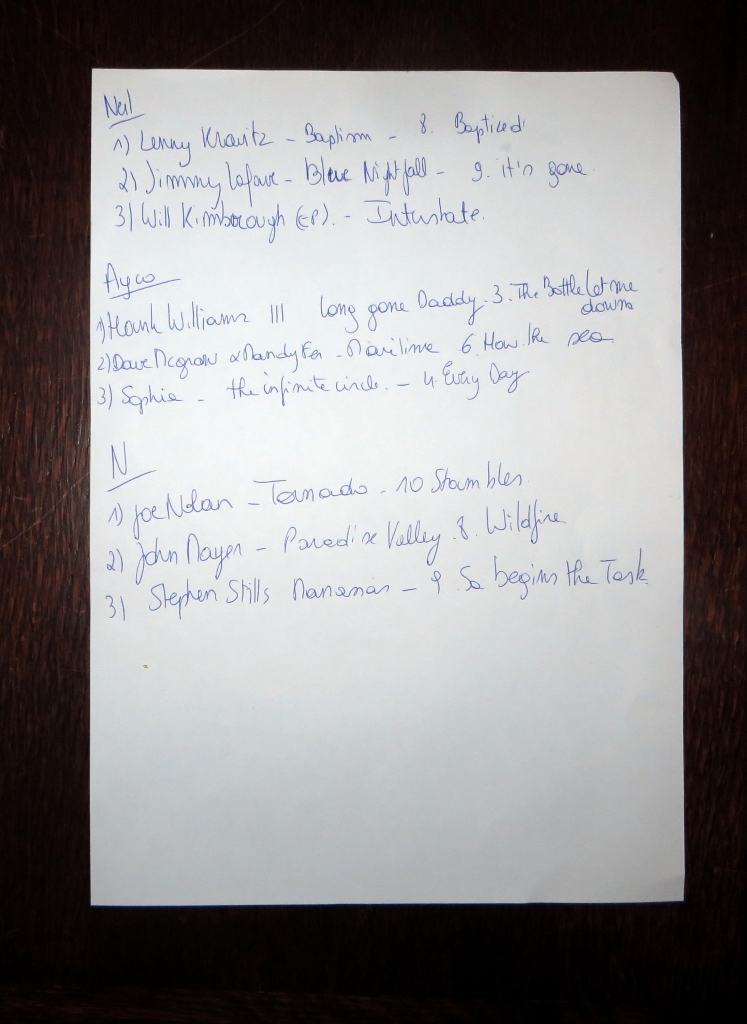 Neil
1) Lenny Kravitz - Baptism - 8. Baptized
2) Jimmy Lafave - Blue Nightfall - 9. it's gone
3) Will Kimbrough (EP). - Interstate.
Ayco
1) Hank Williams III long gone Daddy. 3. The Bottle let me
down
2) Dave Mcgraw & Mandy Fer - Maritime 6. How the sea
3) Sophia - the infinite circle. - 4. Every Day
N
1) Joe Nolan - Tornado - 10 Stumbles
2) John Mayer - Paradise Valley. 8. Wildfire
3) Stephen Stills Manassas - 9. So begins the Task